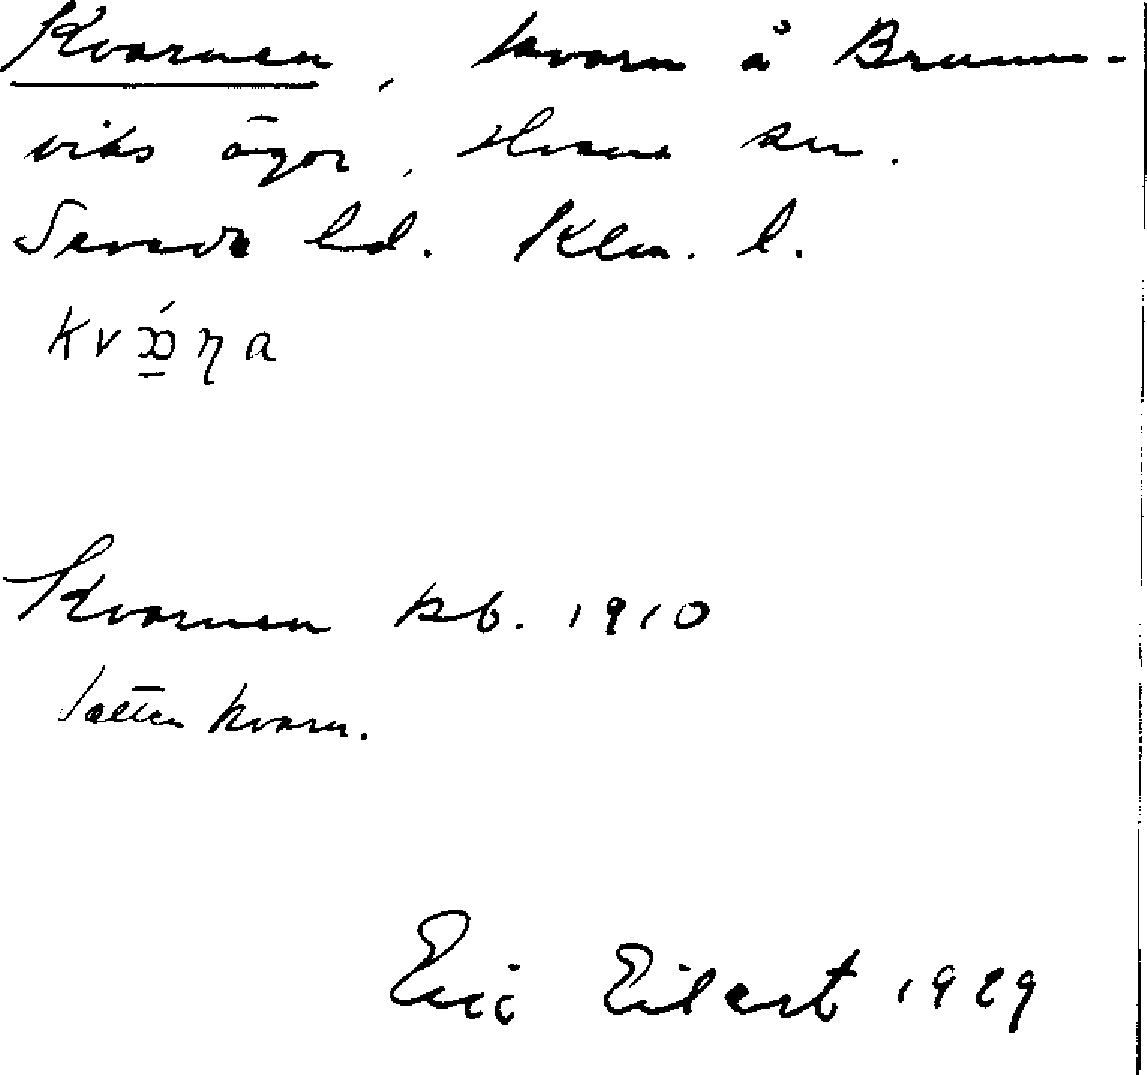 Kvarnen, kvarn å Brunns-
viks ägor, sn.
Sevede hd. Klm. l.
Kvarnen kb. 1910
Vattenkvarn.
Eric Eilert 1929